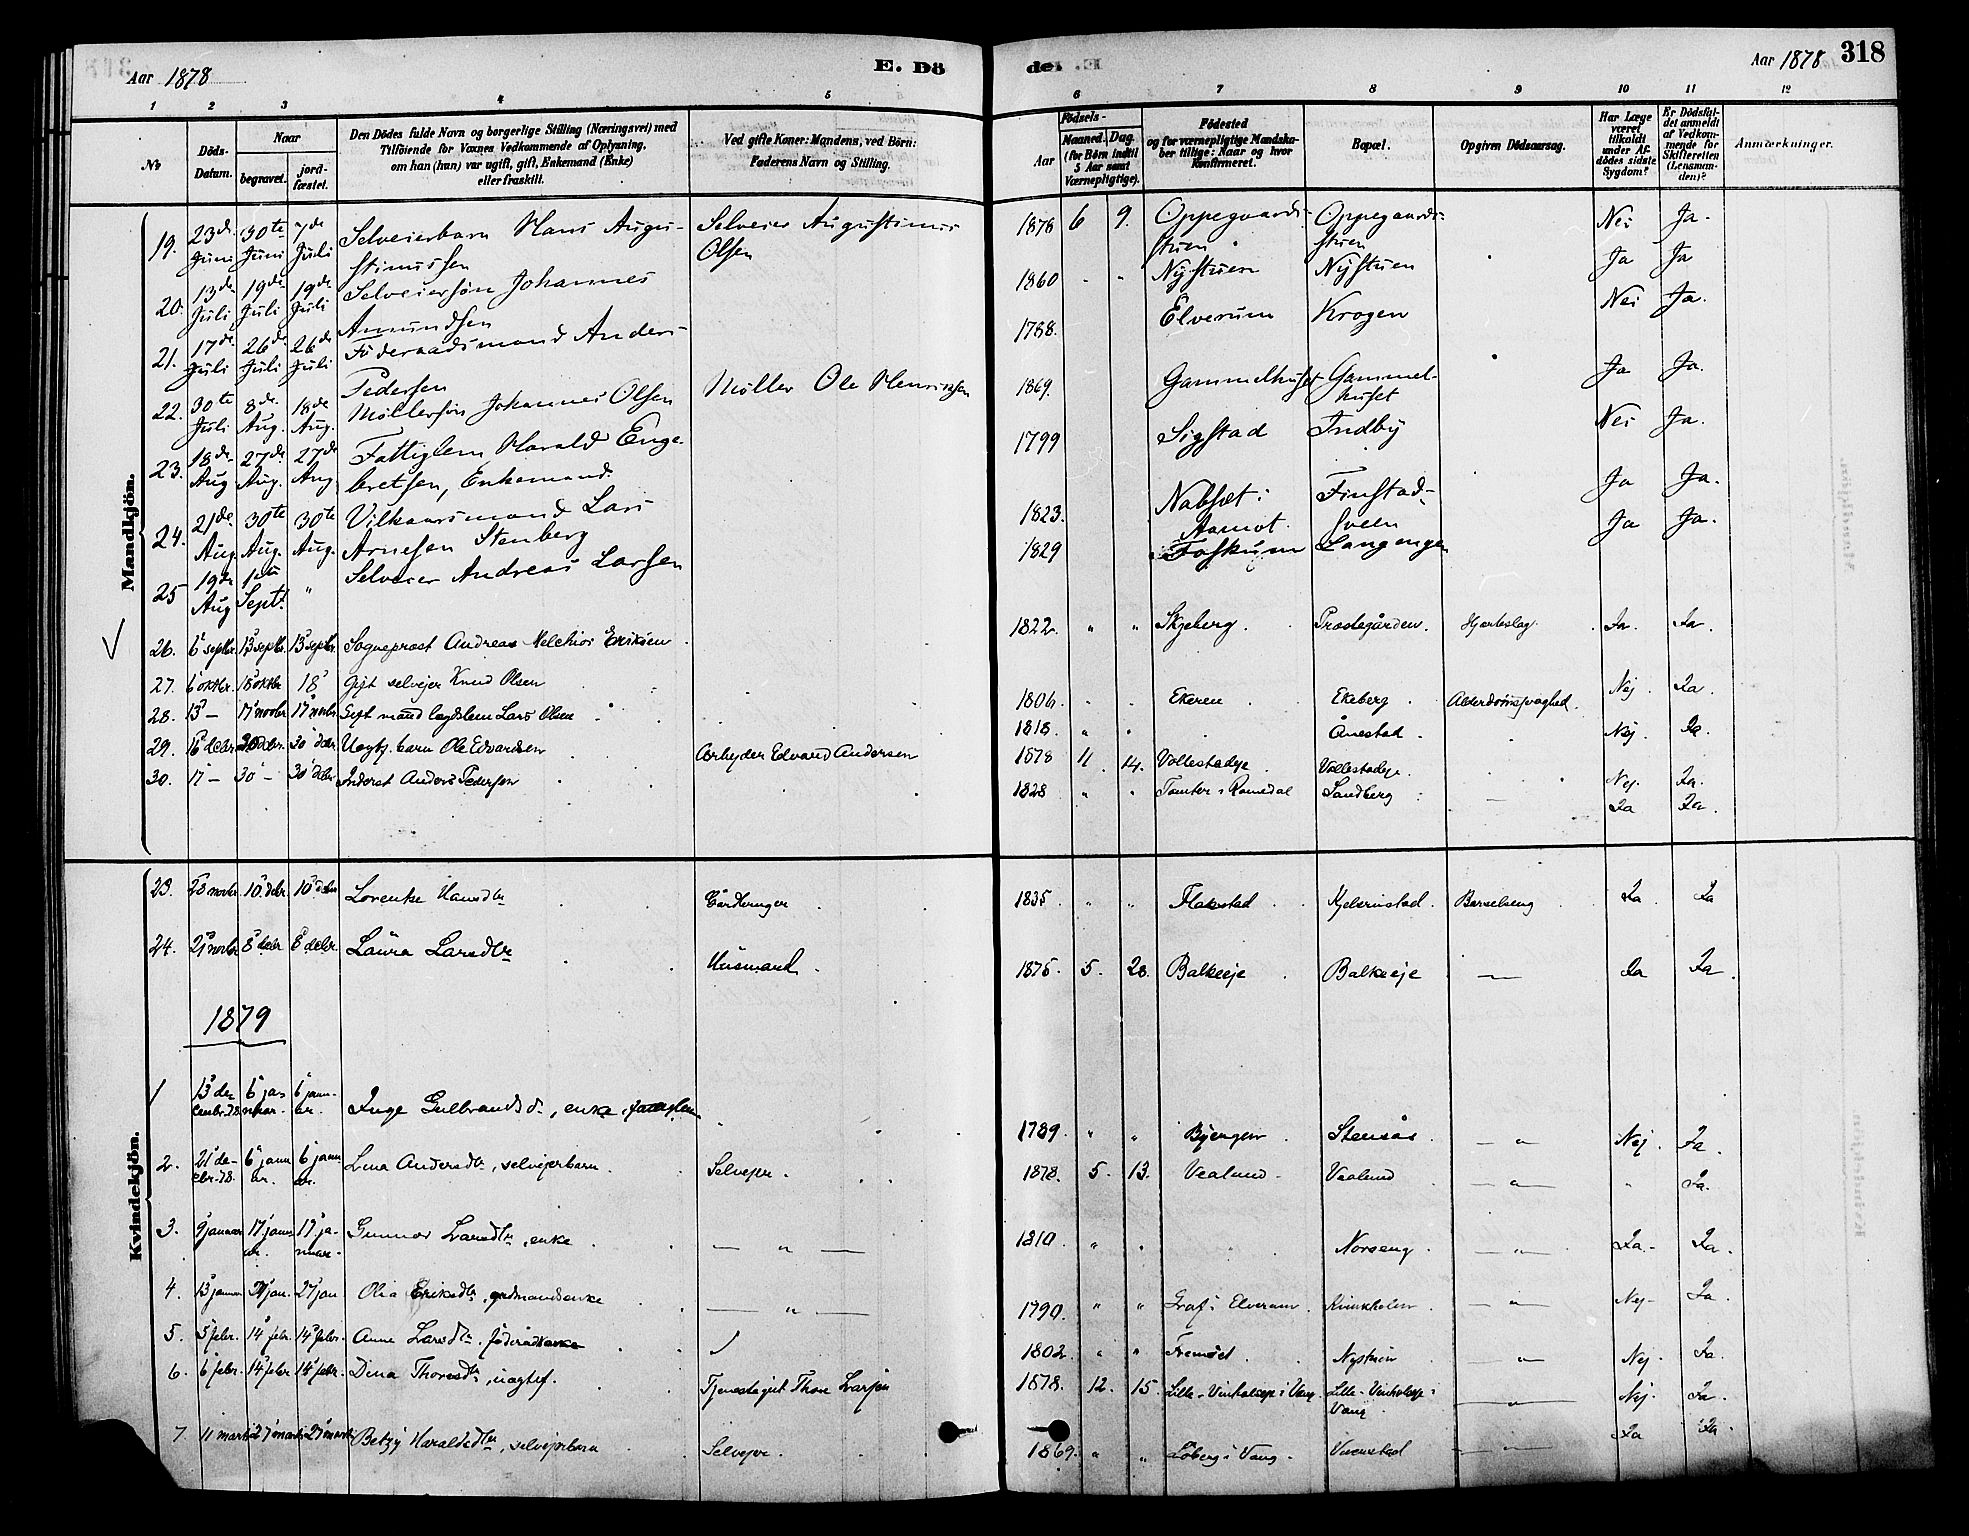 Aar 1878
E. Dö
der E.
Aar 1878 318
1 2 3 4 5 6 7 8 9 10 11 12
No
Döds-Datum.
Naar
begravet.
jordfæstet.
Den Dödes fulde Navn og borgerlige Stilling (Næringsvei) med
Tilföiende for Voxnes Vedkommende af Oplysning,
om han (hun) var ugift, gift, Enkemand (Enke)
eller fraskilt.
Ved gifte Koner: Mandens, ved Börn:
Faderens Navn og Stilling.
Födsels-
Aar
Maaned. Dag.
(for Börn indtil
5 Aar samt
Værnepligtige).
Födested
og for værnepligtige Mandskaber tillige: Naar og hvor
Konfirmeret.
Bopæl.
Opgiven Dödsaarsag.
Har Læge
været
tilkaldt
under Afdödes sidste
Sygdom?
Er Dödsfaldet anmeldt
af Vedkommende for
Skifteretten
(Lensmanden)?
Anmærkninger.
Mandkjön.
19. 23de Juni 30te Juni 7de Juli Selveierbarn Hans Augustinussen Selveier Augustinus Olsen 1878 6 9. Oppegaardsstuen Oppegaardsstuen Nei Ja.
20. 13de Juli 19de Juli 19de Juli Selveiersön Johannes Amundsen 1860 Nystuen Nystuen Ja Ja
21. 17de Juli 26de Juli 26de Juli Föderaadsmand Anders Pedersen 1788. Elverum Krogen Nei Ja.
22. 30te Juli 8de Aug. 18de Aug. Møllersön Johannes Olsen Møller Ole Henriksen 1869. Gammelhuset Gammelhuset Ja Ja.
23. 18de Aug 27de Aug. 27de Aug Fattiglem Harald Engebretsen, Enkemand. 1799 Sigstad Indby Nei Ja.
24. 21de Aug 30te Aug. 30te Aug. Vilkaarsmand Lars Arnesen Stenberg 1823. Nabset i Aamot. Finstadsveen Ja Ja.
25 19de Aug 1ste Sept. " Selveier Andreas Larsen 1829 Foskum Langengen Ja Ja.
26. 6 septbr. 13 septbr. 13 septbr. Sogneprest Andreas Melchior Eriksen 1822. " " Skjeberg. Præstegården. Hjerteslag Ja. Ja.
27. 6 oktbr. 18 oktbr 18 Gift selvejer Knud Olsen 1806. Ekeren Ekeberg. Alderdomssvaghed. Nej Ja.
28. 13 – 17 novbr 17 novbr. Gift mand lægdslem Lars Olsen 1818 " " Ånestad. Nej. Ja.
29. 16 decbr 30 decbr. 30 decbr. Uægte barn Ole Edvardsen Arbejder Edvard Andersen 1878 11 14. Vollestadeje. Vollestadeje. Nej. Ja.
30. 17 – 30 – 30 decbr Inderst Anders Pedersen 1828 " " Tomter i Romedal Sandberg — Ja Ja.
23. 28 novbr. 10 decbr. 10 decbr Lorenke Hansdtr Gårdbruger 1835. " " Flakstad Hjelmstad. Barselseng Ja. Ja
24. 21 novbr 8 decbr 8 decbr. Laura Larsdtr Husmand. 1875 5. 28. Balkeeje Balkeeje — Ja Ja.
1879
Kvindekjön.
1 13 decembr. 78. 6 januar. 6 januar. Inge Gulbrandsd., enke, 1789. " " Bjengen Stensås. — " Nej. Ja.
2. 21 decbr. 78. 6 januar. 6 januar. Lina Andersdtr, selvejerbarn. Selvejer. 1878. 5. 13. Vealund. Vaalund — " — " Ja.
3. 9 januar 17 januar. 17 januar. Gunnor Larsdtr, enke — " — 1810 " " Norseng. — " — Ja. Ja.
4. 13 januar 27 jan. 27 jan Olia Eriksdtr, gårdmandsenke — " — 1790. " " Graf i Elverum. — " — Nej. Ja.
5. 5 febr. 14 febr. 14 febr. Anne Larsdtr. föderådsenke 1802. " " Fremset Nystuen — " Nej. Ja.
6. 6 febr. 14 febr 14 febr. Dina Thoresdtr, uægtef. Tjenestegut Thore Larsen 1878. 12. 15. Lille-Vinkeleje i Vang Lille-Vinkeleje i Vang — " — Nej. Ja.
7. 11 marts 27 marts 27 marts Betzy Haraldsdtr, selvejerbarn Selvejer. 1869. " " Löberg i Vang. — " — Ja Ja.